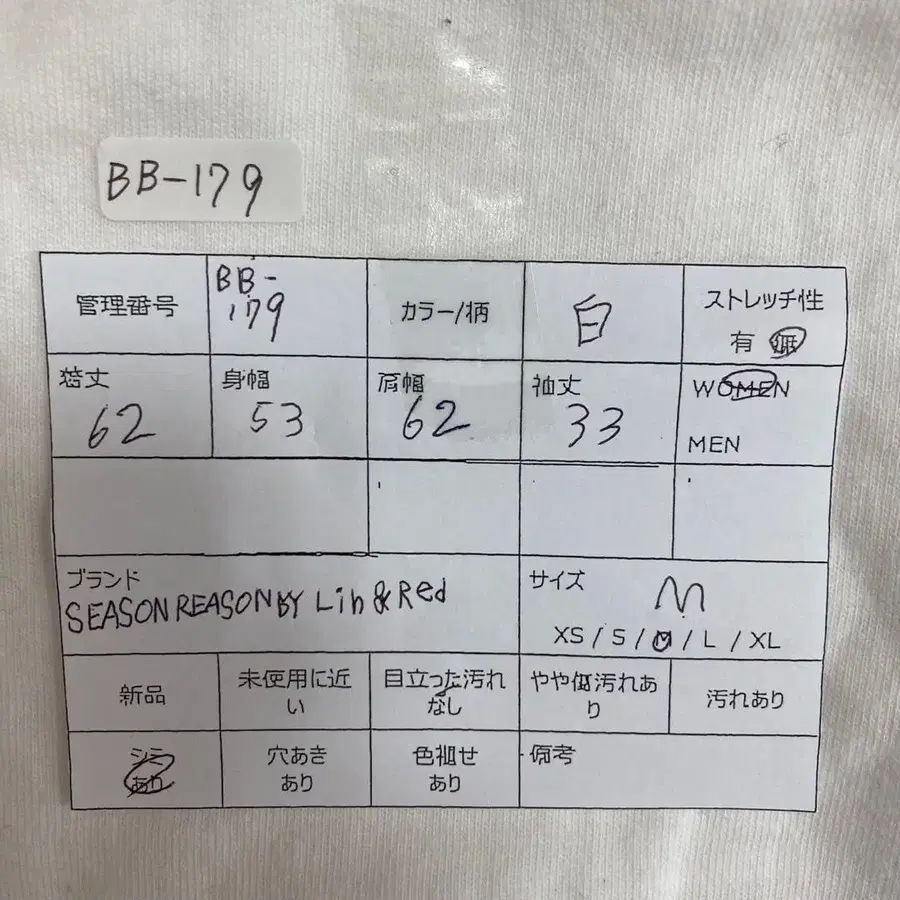 BB-179
管理番号
BB-
179
カラー/柄
白
ストレッチ性
有 無
着丈
62
身幅
53
肩幅
62
袖丈
33
WOMEN
MEN
ブランド
SEASON REASON BY Lin & Red
サイズ
M
XS / S / M / L / XL
新品
未使用に近
い
目立った汚れ
なし
やや傷汚れあ
り
汚れあり
シミ
あり
穴あき
あり
色褪せ
あり
備考